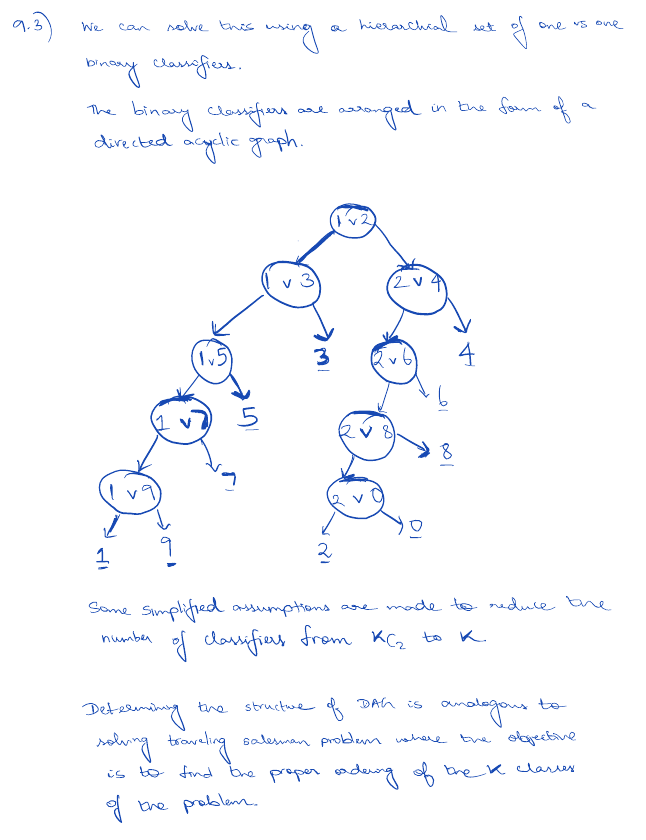 9.3) We can solve this using a hierarchial set of one vs one
binary classifiers.
The binary classifiers are arranged in the form of a
directed acyclic graph.
1 v 2
1 v 3
2 v 4
1 v 5
3
2 v 6
4
1 v 7
5
2 v 8
6
7
8
1 v 9
2 v 0
1
9
2
0
Some simplified assumptions are made to reduce the
number of classifiers from KC2 to K.
Determining the structure of DAG is analogous to
solving traveling salesman problem where the objective
is to find the proper ordering of the K classes
of the problem.